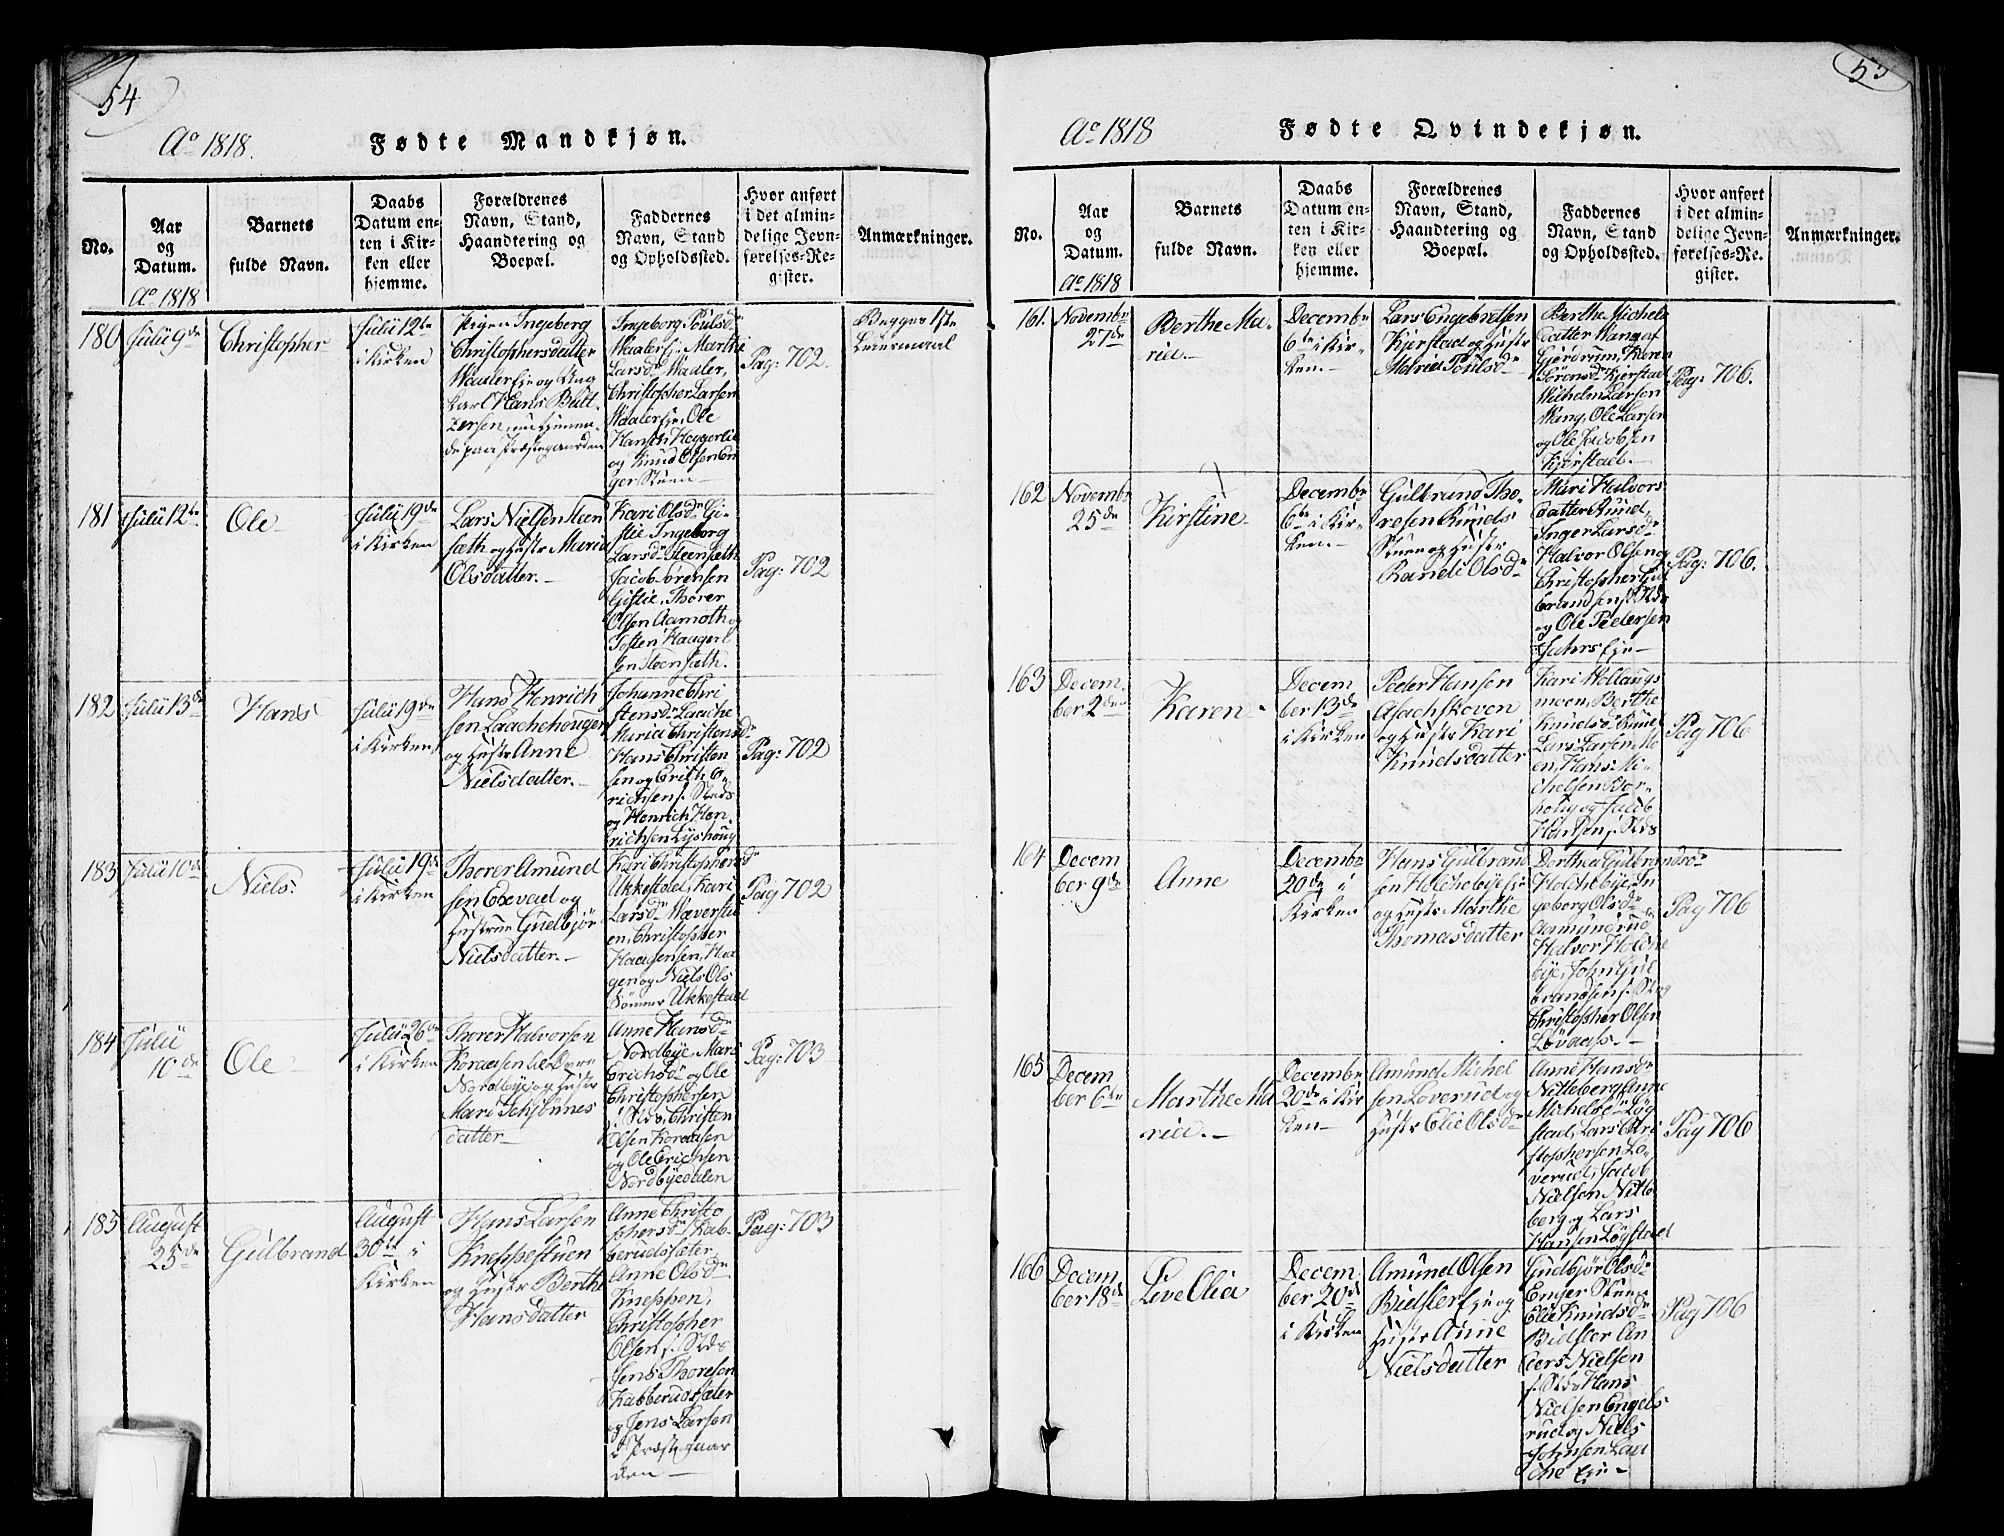 54
Ao 1818.
Fødte Mandkjøn.
No.
Aar
og
Datum.
Barnets
fulde Navn.
Daabs
Datum en-
ten i Kir-
ken eller
hjemme.
Forældrenes
Navn, Stand,
Haandtering og
Boepæl.
Faddernes
Navn, Stand
og Opholdssted.
Hvor anført
i det almin-
delige Jevn-
førelses-Re-
gister.
Anmærkninger.
Ao 1818
180
Julii 9de
Christopher
Julii 12te
i Kirken
Pigen Ingeborg
Christophersdatter
Waaler Eje og Ung
karl Hans Balt-
zersen,
Ingeborg Poulsdr
Waaler Eje, Marthe
Larsdr Waaler,
Christopher Larsen
Waaler Eje, Ole
Hansen Heggerlie
og Knud Olsen
Pag: 702.
Begges 1ste
Leiermaal
181
Julii 12te
Ole
Julii 19de
i Kirken
Lars Nielsen Steen
sæth og Hustr Maria
Olsdatter.
Kari Olsdr Gi-
stie, Ingeborg
Larsdr Steensæth
Jacob Sörensen
Gistie, Thorer
Olsen Aamoth og
Tosten Haagen
sen Steensæth.
Pag: 702
182
Julii 13de
Hans
Julii 19de
i Kirken
Hans Henrich
sen Laachehougen
og Hustr Anne
Nielsdatter.
Johanne Chri
stensdr Laache
Maria Christensdr
Hans Christen
sen og Erich E-
richsen f. Steds
og Henrich Hen-
richsen Lyshoug
Pag: 702
183
Julii 10de
Niels
Julii 19de
i Kirken
Thorer Amund
sen Egevad og
Hustrue Gudbjør
Nielsdatter.
Kari Christophersdr
Ukkestad, Kari
Larsdr Wæverstu
en, Christopher
Haagensen, Haa
gen og Niels Ols
Sönner Ukkestad
Pag 702
184
Julii
10de
Ole
Julii 26de
i Kirken
Thorer Halvorsen
Nordbye og Hustr
Mari Schjönnes
datter
Anne Hansdr
Nordbye, Mari
Erichsdr og Ole
Christophersen
i. Sted, Christen
Olsen
og Ole Erichsen
Nordbyedalen
Pag: 703
185
August
25de
Gulbrand
August
30te i
Kirken
Hans Larsen
Kneppestuen
og Hustr Berthe
Hansdatter
Anne Christo
phersdr Kab-
berudsæter,
Anne Olsdr
Kneppen,
Christopher
Olsen, f. Sted
Jens Thoresen
Kabberudsæter
og Jens Larsen
i Præstegaar
den
Pag: 703
53
Ao 1818
Fødte Qvindekjøn.
No.
Aar
og
Datum.
Barnets
fulde Navn.
Daabs
Datum en-
ten i Kir-
ken eller
hjemme.
Forældrenes
Navn, Stand,
Haandtering og
Boepæl.
Faddernes
Navn, Stand
og Opholdssted.
Hvor anført
i det almin-
delige Jevn-
førelses-Re-
gister.
Anmærkninger.
Ao 1818
161.
Novembr
27de
Berthe Ma-
ria.
Decembr
6te i Kir-
ken.
Lars Engebretsen
Kjerstad og Hustr
Maria Poulsdr
Berthe Michels
datter Wang af
Gjerdrum, Karen
Sörensdr Kjerstad
Wilhelm Larsen
Wang, Ole Larsen
og Ole Jacobsen
Kjerstad.
Pag: 706.
162
Novembr
25de
Kirstine
Decembr
6te i Kir-
ken.
Gulbrand Tho-
resen Ruuds
Stuen og Hustr
Randi Olsdr
Mari Halvors
datter Ruud,
Inger Larsdr
Halvor Olsen og
Christopher Gul
brandsen f. Steds
og Ole Pedersen
Pag: 706.
163
Decem-
ber 2den
Karen
Decem
ber 13de
i Kirken
Peder Hansen
Asachskoven
og Hustr Kari
Knudsdatter
Kari Hollaugs
moen, Berthe
Knudsdr
Lars Larsen Mo
en, Hans Mi-
chelsen
og Jacob
Hansen f. Steds
Pag 706
164
Decem
ber 9de
Anne
Decembr
20de i
Kirken
Hans Gulbrand
sen Holchebye Eje
og Hustr Marthe
Thomasdatter
Dorthea Gulbrandsdr
Holchebye, In
geborg Olsdr
Aamundrud
Halvor Holche
bye, John Gul
brandsen f. Sted
Christopher Olsen
Løvaas.
Pag 706
165
Decem
ber 6te
Marthe Ma
ria.
Decembr
20de i Kir
ken
Amund Michel
sen Loverud og
Hustr Elie Olsdr
Anne Hansdr
Nitteberg, Anne
Michelsdr Løg
stad, Lars Chri
stophersen Lo-
verud, Jacob
Nielsen Nitte
berg og Lars
Hansen Løgstad
Pag 706
166
Decem
ber 18de
Live Olia
Decem
ber 20de
i Kirken
Amund Olsen
Bidsler Eje og
Hustr Anne
Nielsdatter
Gudbjør Olsdr
Enger Stuen
Elie Knudsdr
Bidsler, An
ders Nielsen
f. Sted, Hans
Nielsen Engels
rud og Niels
Johnsen Laa
che Eje
Pag 706